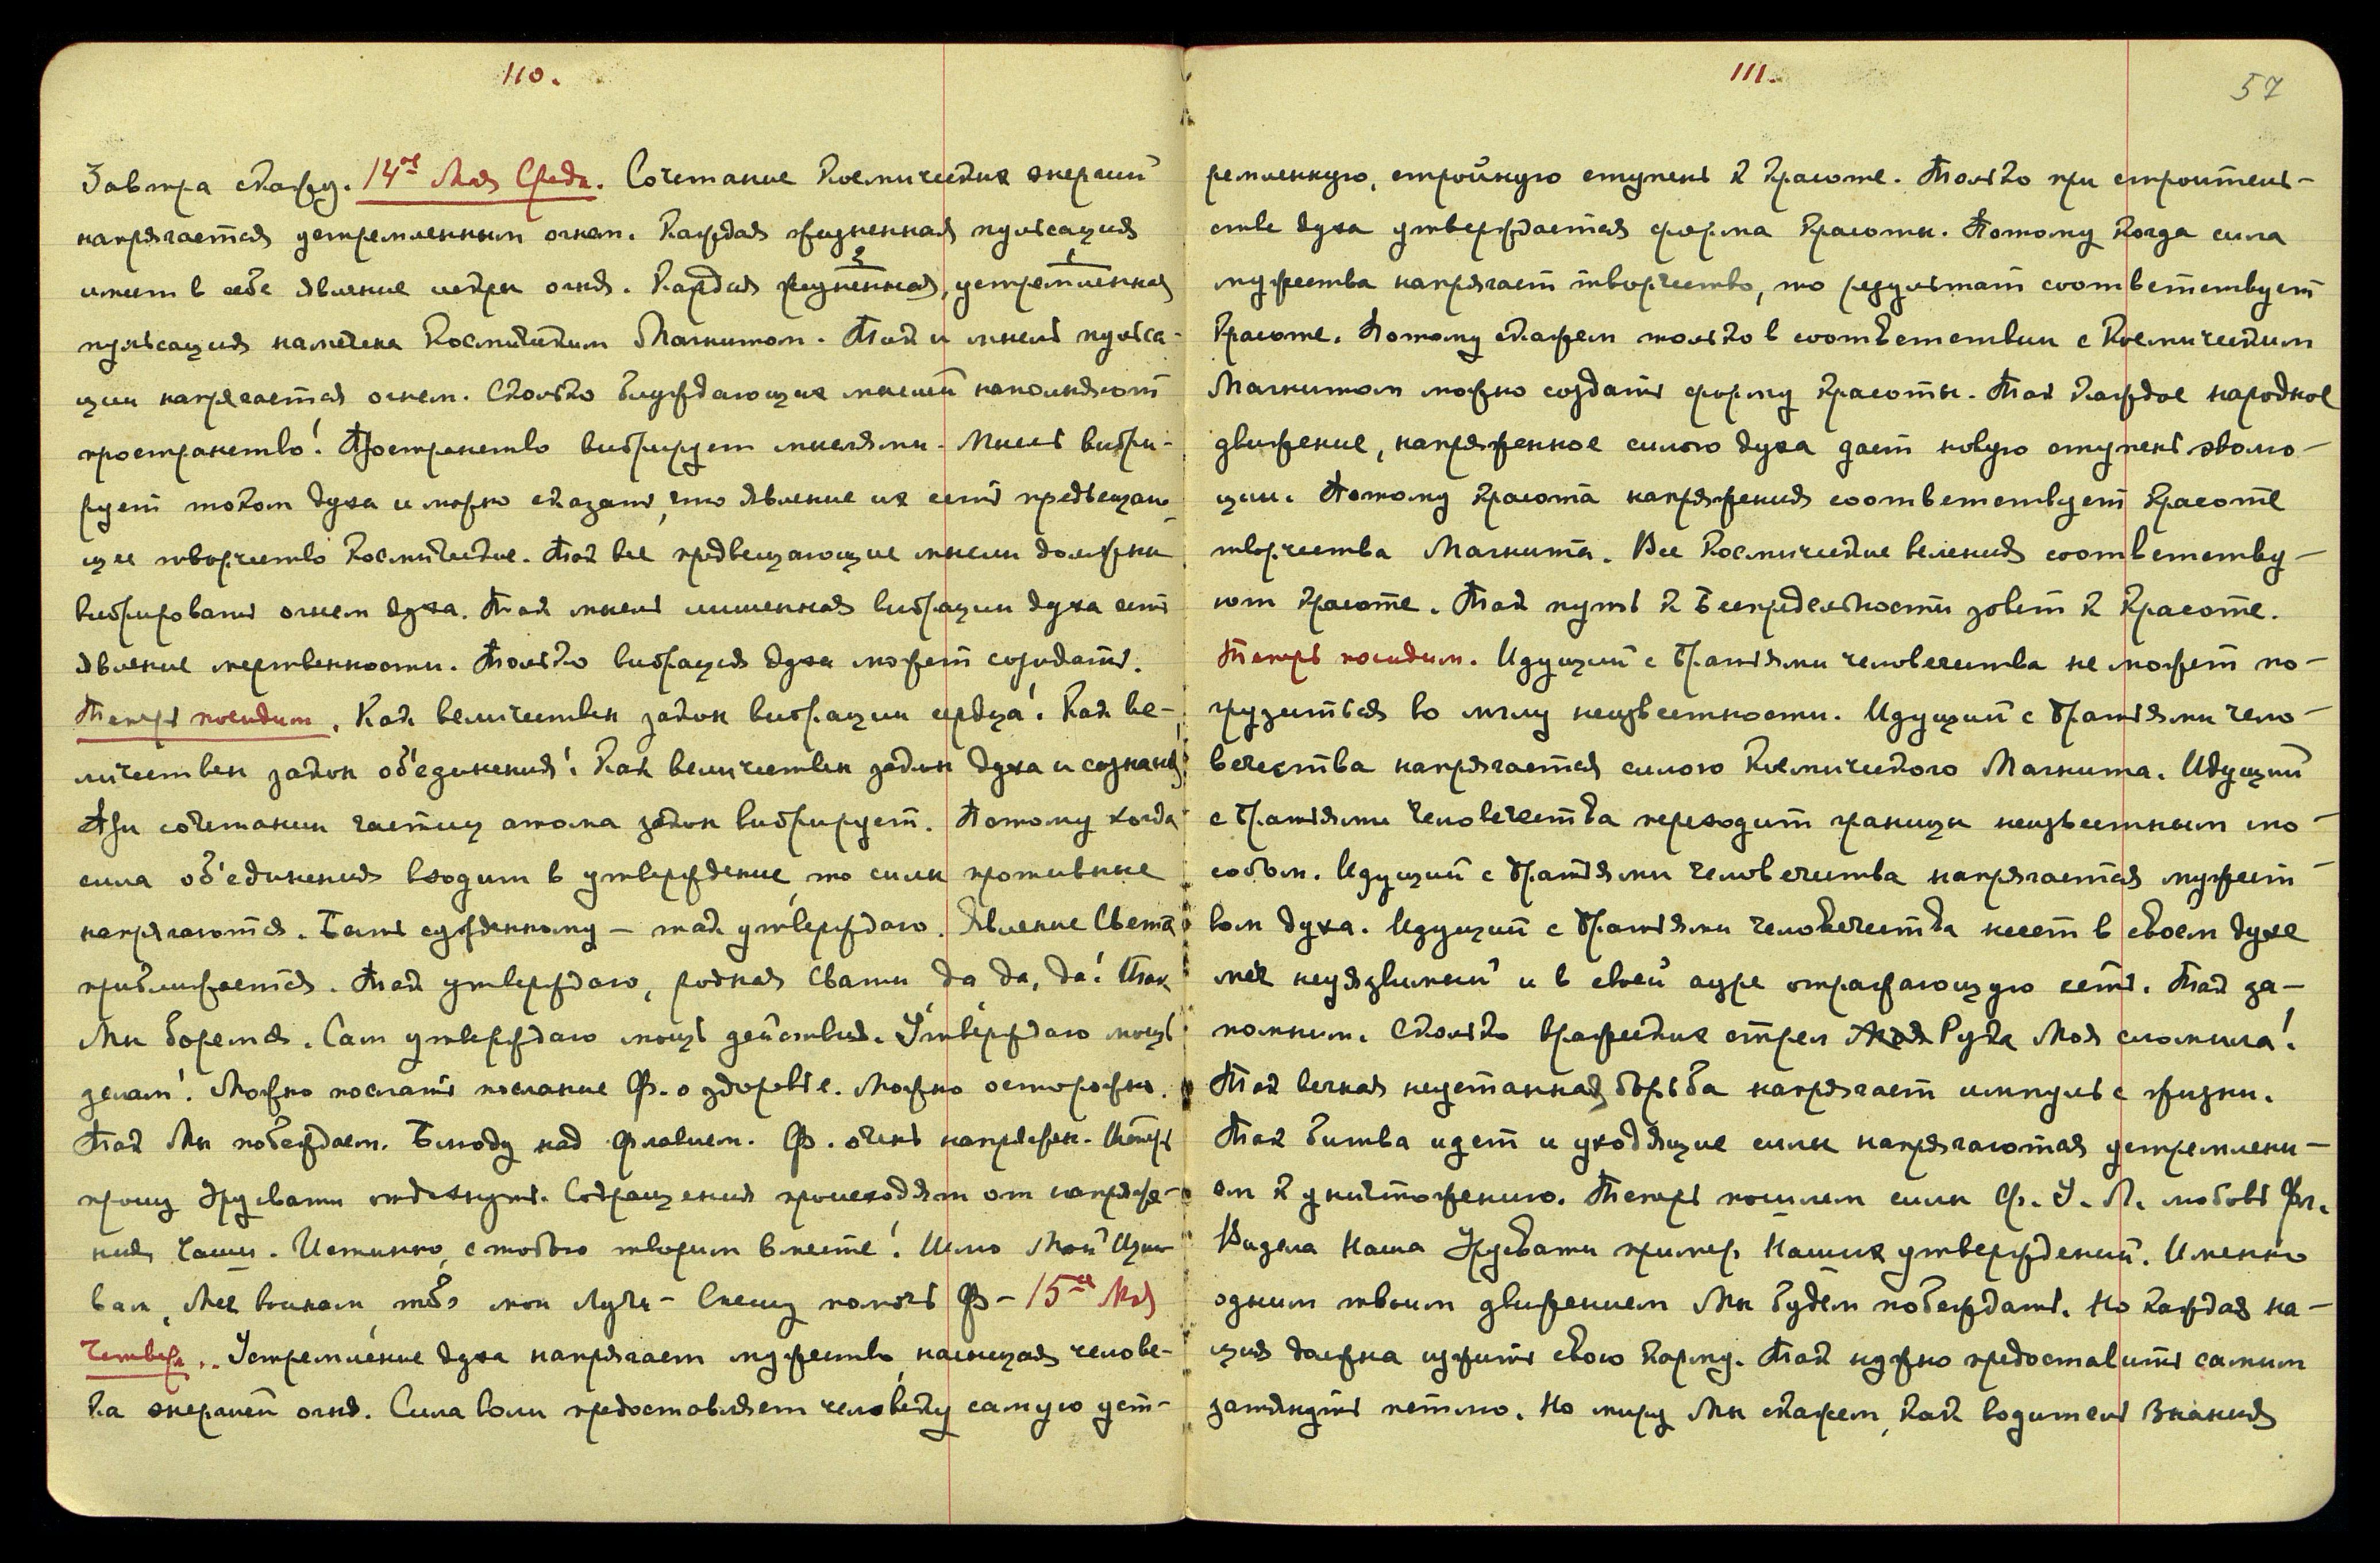 110.
Завтра скажу. 14ое Мая Среда. Сочетание Космических энергий
напрягается устремленным огнем. Каждая жизненная пульсация
имеет в себе явление искры огня. Каждая жизненная, устремленная
пульсация намечена Космическим Магнитом. Так и мысль пульса-
ции напрягается огнем. Сколько блуждающих мыслей наполняют
пространство! Пространство вибрирует мыслями. Мысль вибри-
рует током духа и можно сказать, что явление их есть предвещаю-
щее творчество Космическое. Так все предвещающие мысли должны
вибрировать огнем духа. Так мысль лишенная вибрации духа есть
явление мертвенности. Только вибрация духа может созидать.
Теперь посидим. Как величествен закон вибрации сердца! Как ве-
личествен закон об'единения! Как величествен закон духа и сознания!
При сочетании частиц атома закон вибрирует. Потому когда
сила об'единения входит в утверждение, то силы противные
напрягаются. Быть сужденному – так утверждаю. Явление Света
приближается. Так утверждаю, родная Свати да да, да! Так
Мы боремся. Сам утверждаю мощь действия. Утверждаю мощь
делам! Можно послать послание Ф. о здоровье. Можно осторожно.
Так Мы побеждаем. Блюду над Флавием. Ф. очень напряжен. Теперь
прошу Урусвати отдохнуть. Сокращения происходят от напряже-
ния Чаши. Истинно, с тобою творим вместе! Шлю Мой
вам, тебе мои Лучи – Спешу помочь Ф – 15ое Мая
Четверг. Устремление духа напрягает мужество, насыщая челове-
ка энергией огня. Сила воли предоставляет человеку самую уст-
111.
57
ремленную, стройную ступень к Красоте. Только при строитель-
стве духа утверждается форма Красоты. Потому когда сила
мужества напрягает творчество, то результат соответствует
Красоте. Потому скажем только в соответствии с Космическим
Магнитом можно создать форму Красоты. Так каждое народное
движение, напряженное силою духа дает новую ступень эволю-
ции. Потому Красота напряжения соответствует Красоте
творчества Магнита. Все Космические веления соответству-
ют Красоте. Так путь к Беспредельности зовет к Красоте.
Теперь посидим. Идущий с Братьями человечества не может по-
грузиться во мглу неизвестности. Идущий с Братьями чело-
вечества напрягается силою Космического Магнита. Идущий
с Братьями Человечества переходит границы неизвестным спо-
собом. Идущий с Братьями Человечества напрягается мужест-
вом духа. Идущий с Братьями Человечества несет в своем духе
меч неуязвимый и в своей ауре отражающую сеть. Так за-
помним. Сколько вражеских стрел Рука Моя сломила!
Так вечная неустанная борьба напрягает импульс жизни.
Так битва идет и уходящие силы напрягаются устремлени-
ем к уничтожению. Теперь пошлем силы Ф. У. Л. любовь Фл.
Видела Наша Урусвати пример Наших утверждений. Именно
одним твоим движением Мы будем побеждать. Но каждая на-
ция должна изжить свою карму. Так нужно предоставить самим
затянуть петлю. Но миру Мы скажем, как водитель Знания